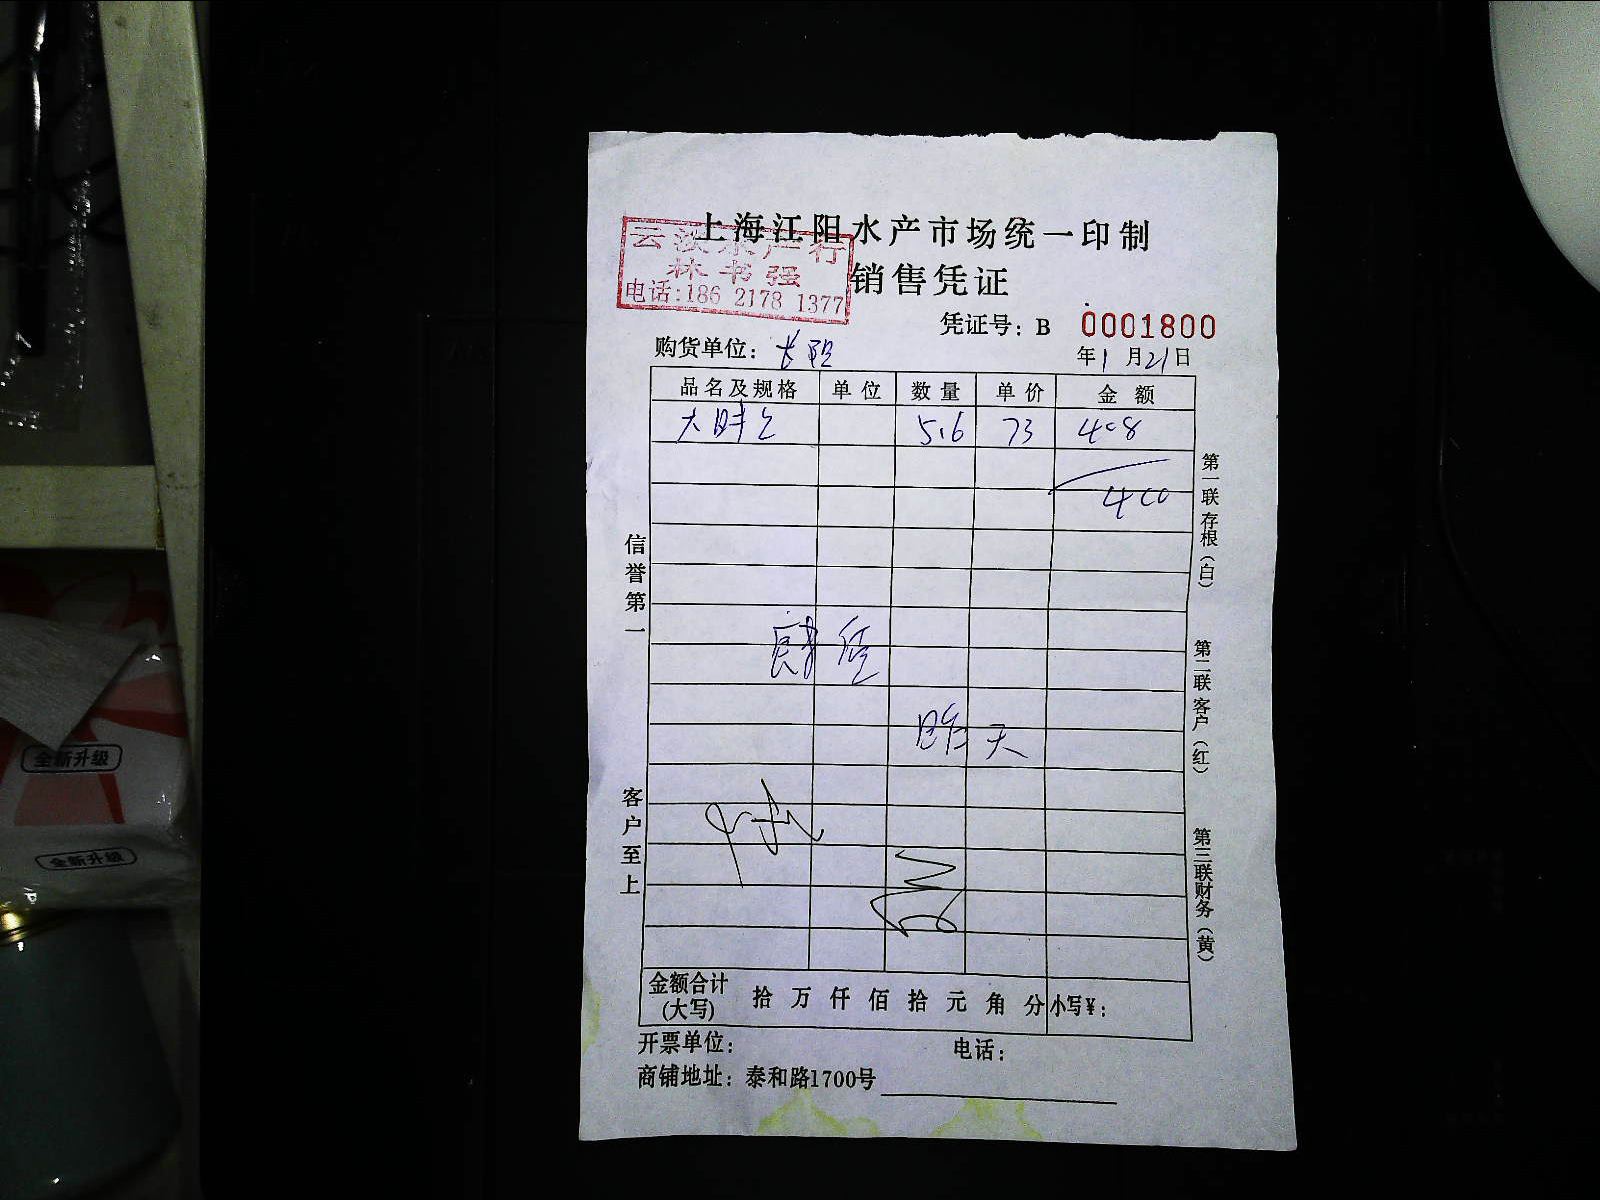 上海江阳水产市场统一印制
销售凭证
云 水产行
林书强
电话:186 2178 1377
凭证号：B 0001800
购货单位：长阳
年1月21日
品名及规格 单位 数量 单价 金额
大 5.6 73 408
400
昨天
信誉第一
客户至上
第一联存根（白）
第二联客户（红）
第三联财务（黄）
金额合计(大写) 拾 万 仟 佰 拾 元 角 分 小写¥：
开票单位： 电话：
商铺地址：泰和路1700号
全新升级
全新升级